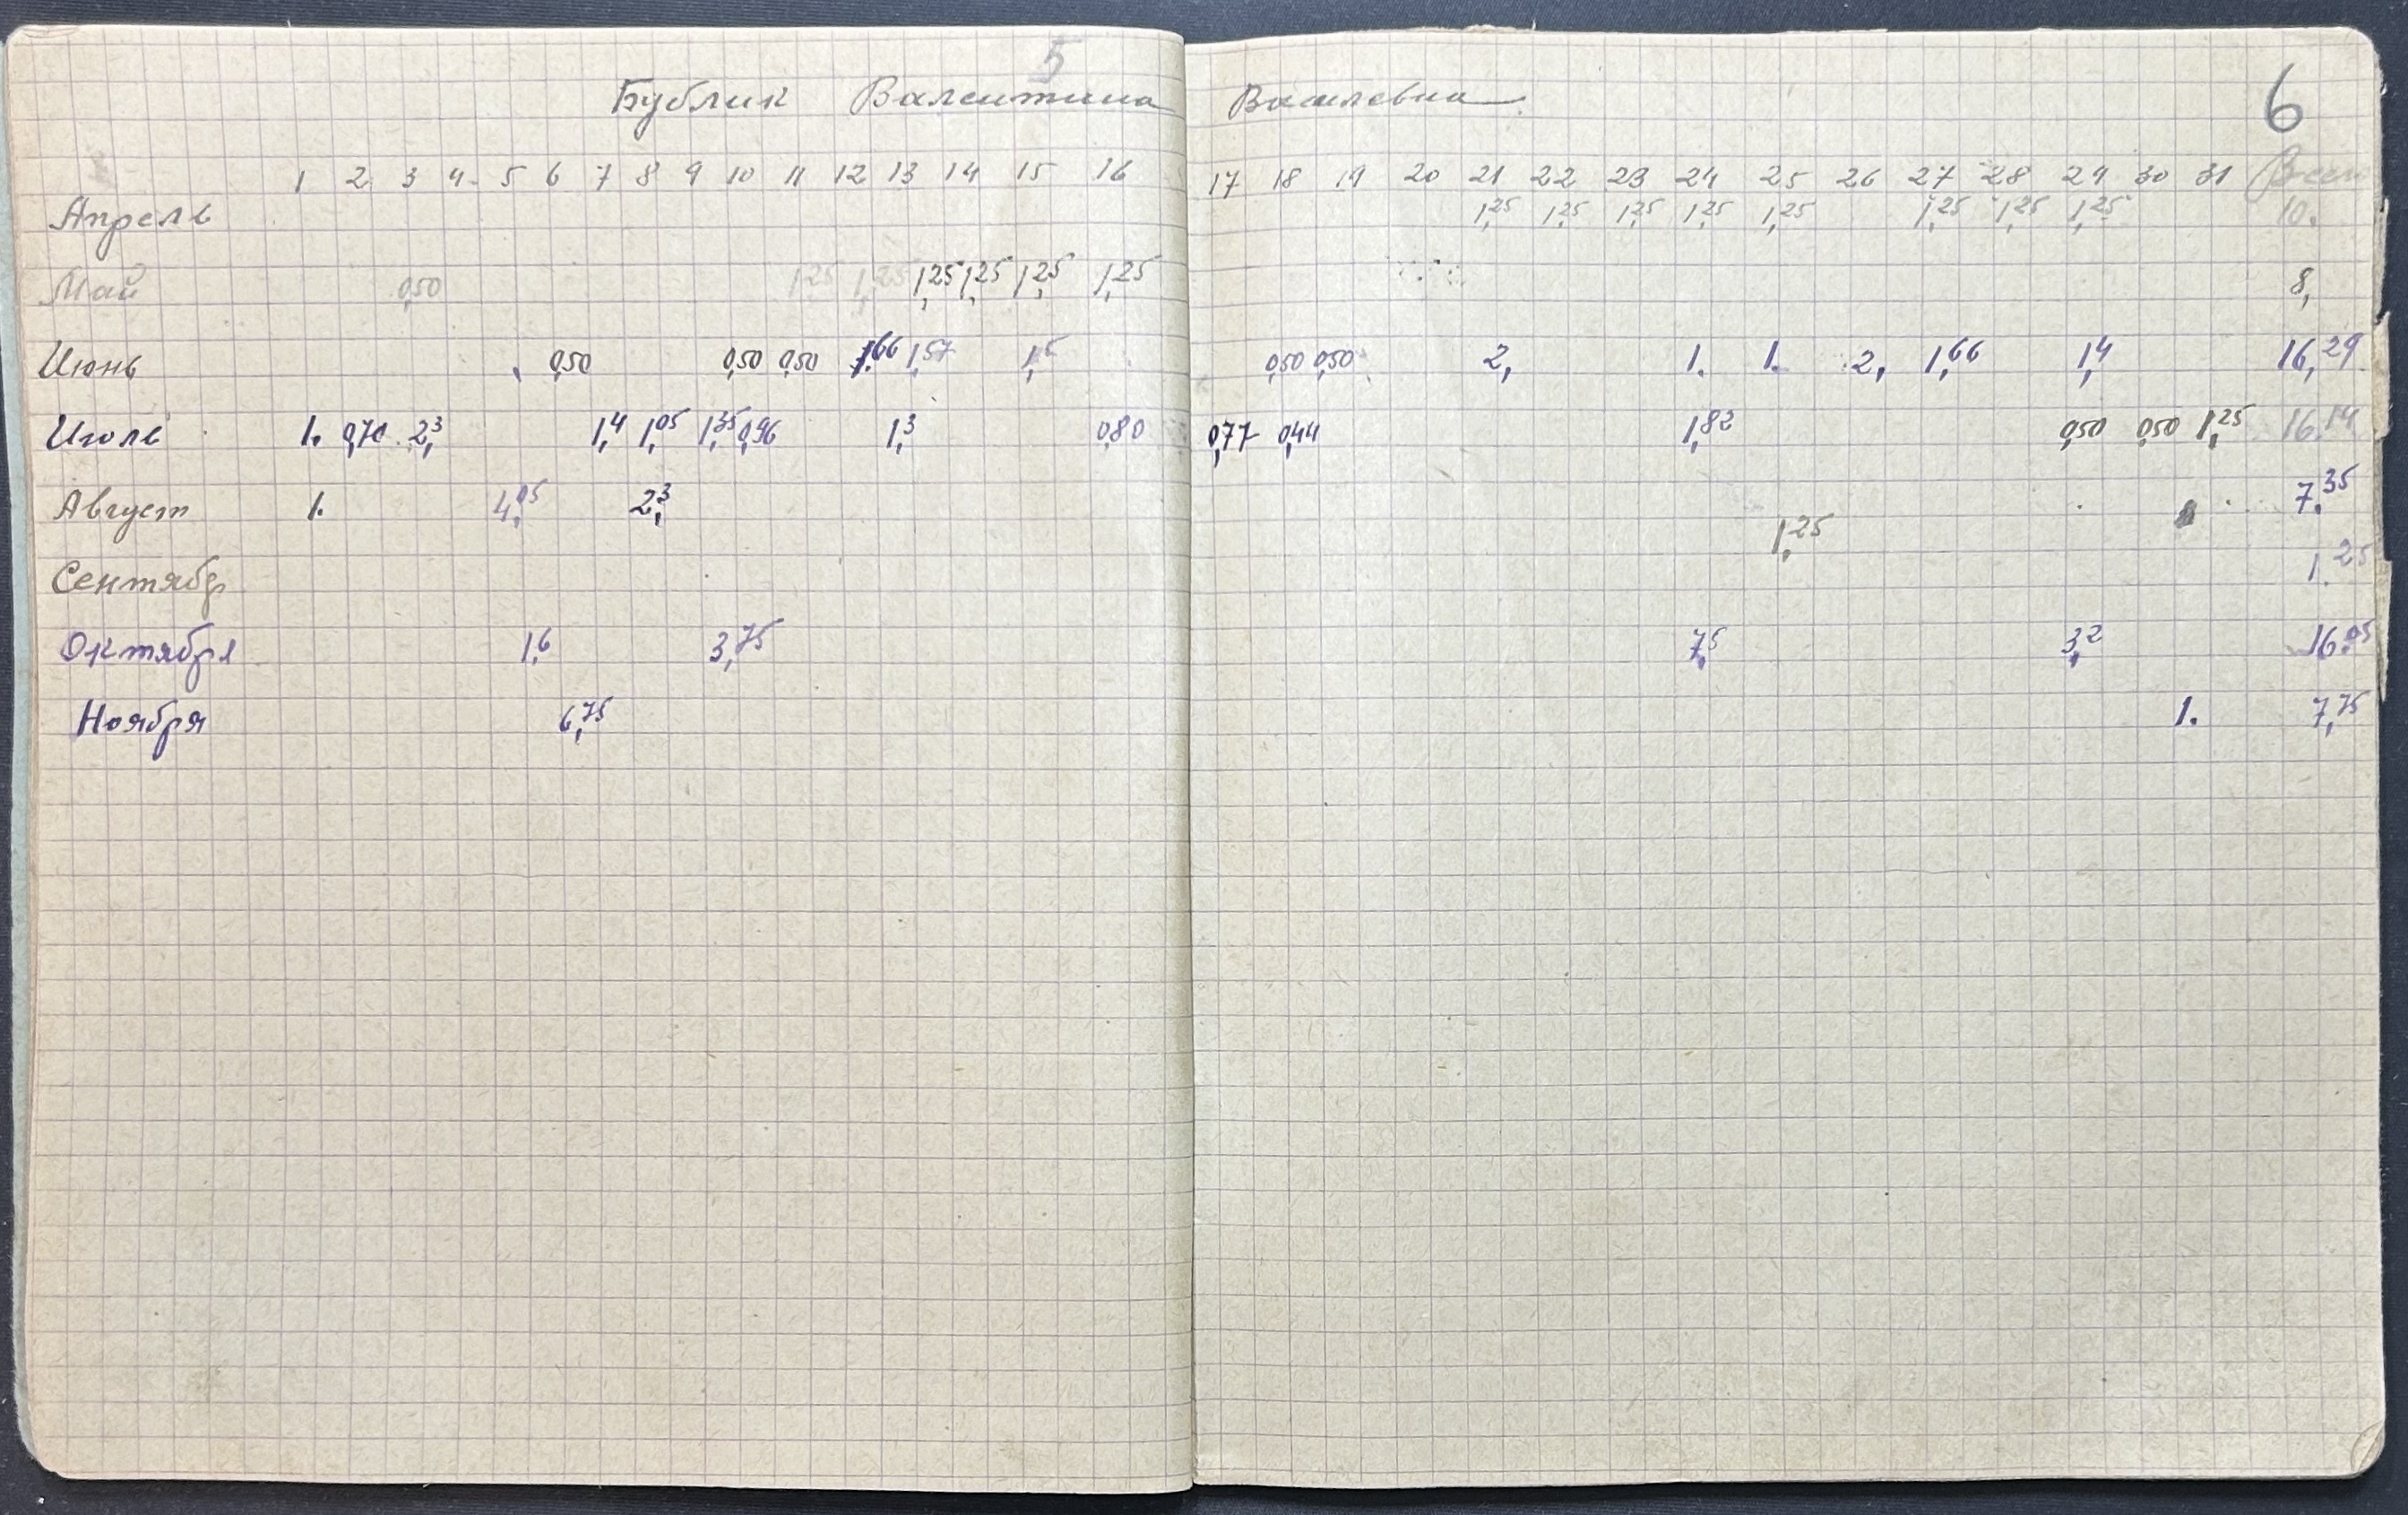 5
6
Бублик Валентина Василевна
1 2 3 4 5 6 7 8 9 10 11 12 13 14 15 16 17 18 19 20 21 22 23 24 25 26 27 28 29 30 31 Всего
Апрель 1,25 1,25 1,25 1,25 1,25 1,25 1,25 1,25 10.
Май 0,50 1,25 1,25 1,25 1,25 1,25 1,25 8,
Июнь 0,50 0,50 0,50 1,66 1,57 1,5 0,50 0,50 2, 1. 1. 2, 1,66 1,4 16,29
Июль 1. 0,70 2,3 1,4 1,05 1,35 0,96 1,3 0,80 0,77 0,44 1,82 0,50 0,50 1,25 16.14
Август 1. 4,05 2,3 7.35
Сентябр 1,25 1.25
Октября 1,6 3,75 7,5 3,2 16.05
Ноября 6,75 1. 7,75